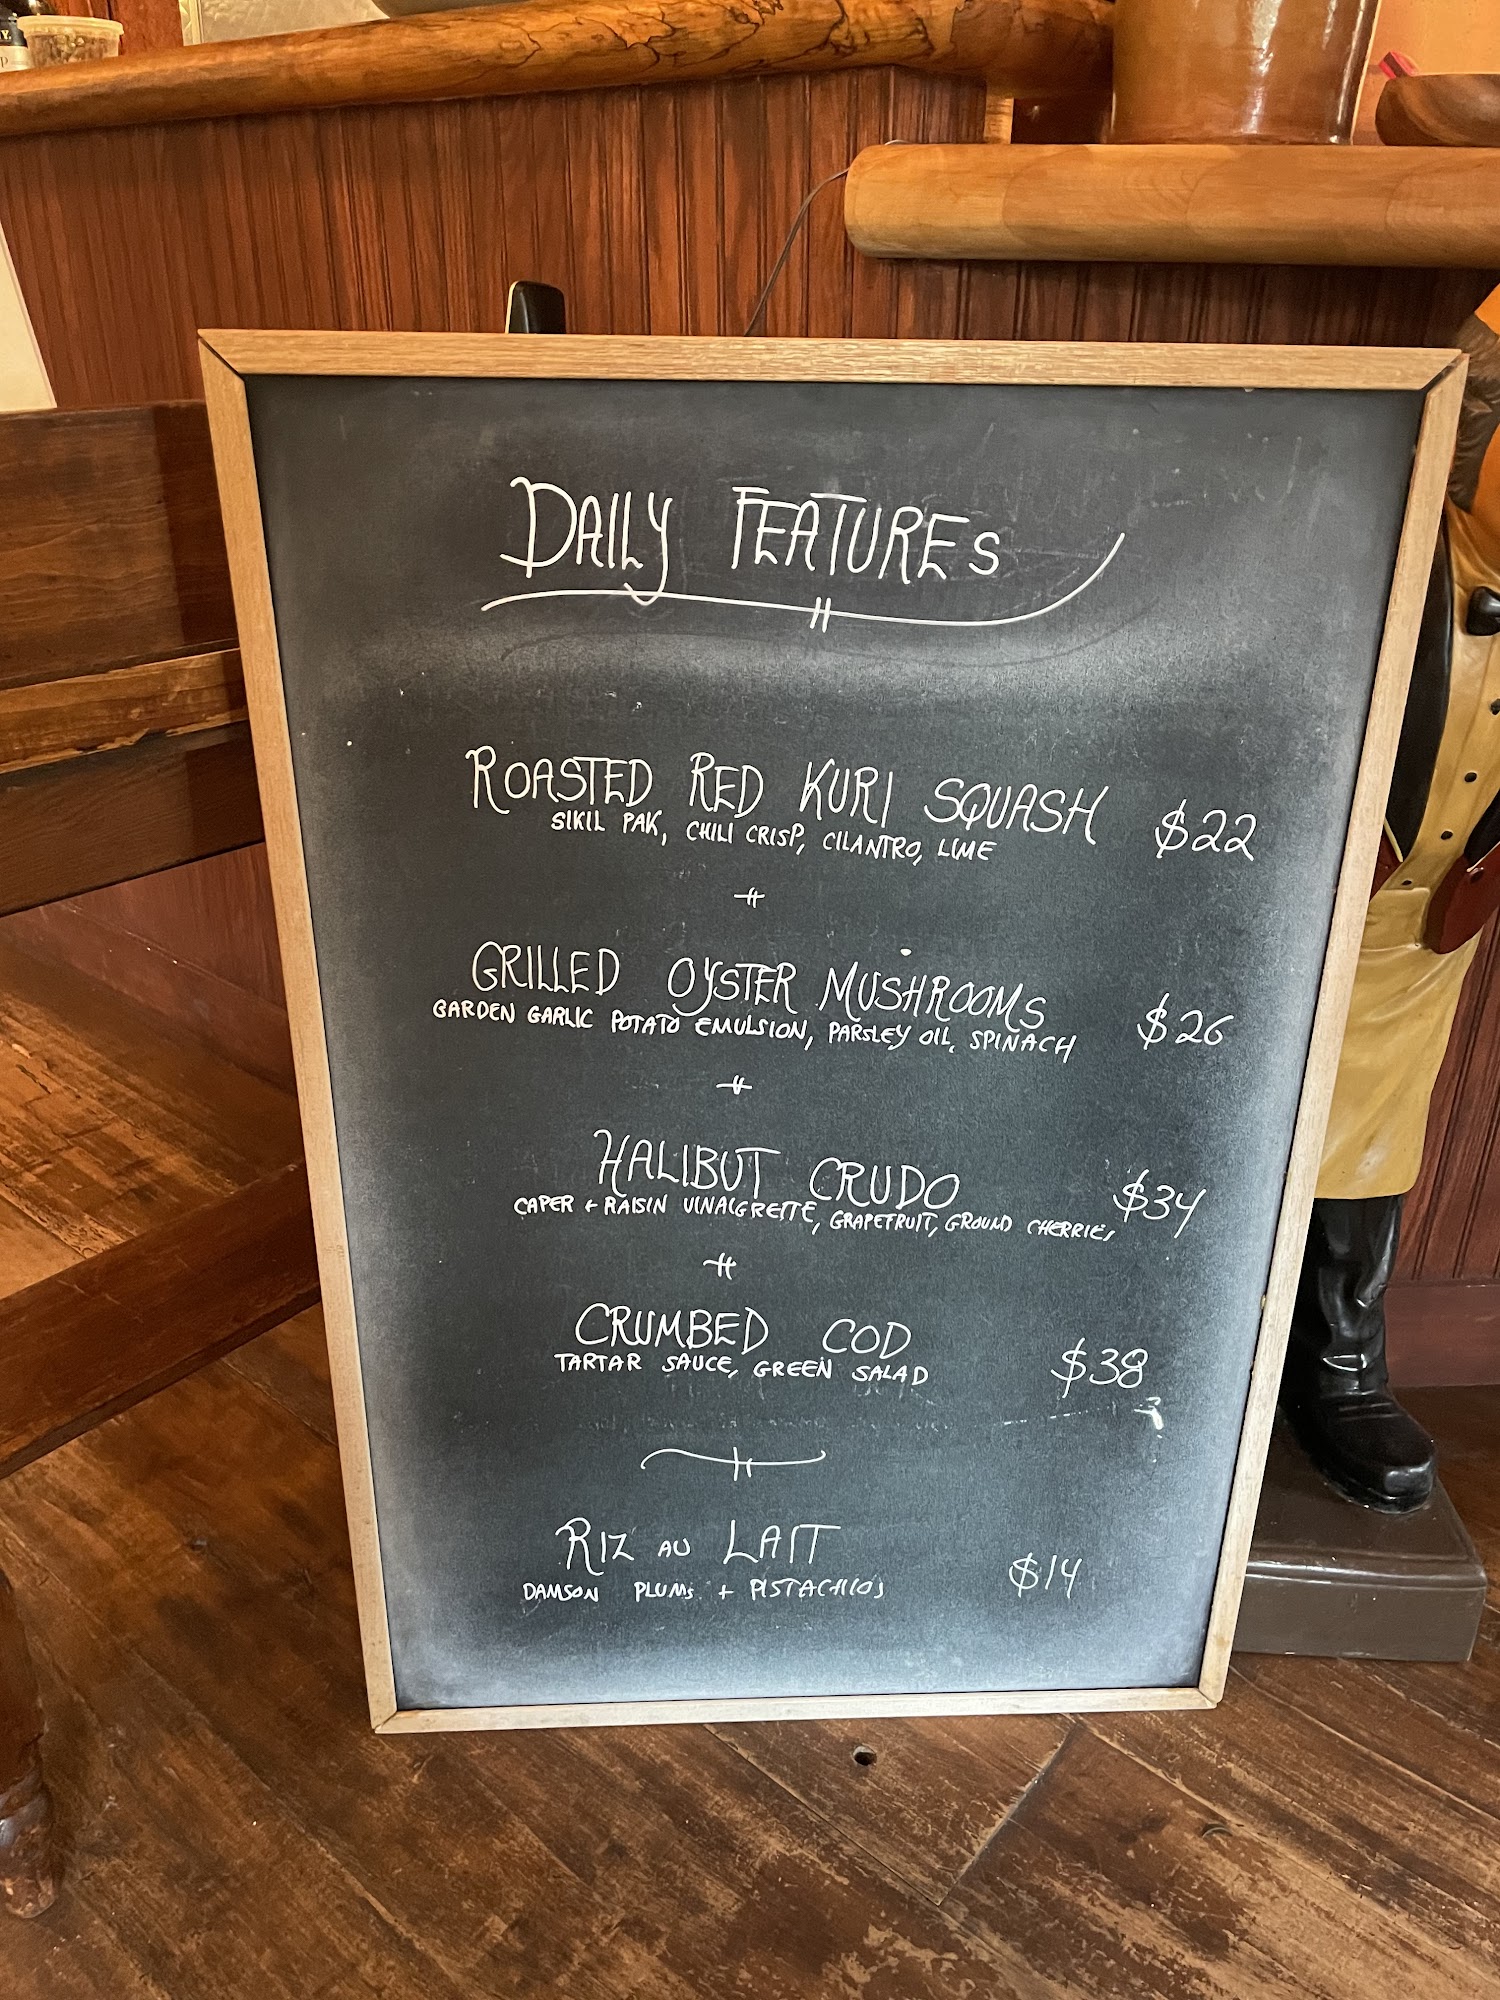 DAILY FEATURES
ROASTED RED KURI SQUASH $22
SIKIL PAK, CHILI CRISP, CILANTRO, LIME
GRILLED OYSTER MUSHROOMS $26
GARDEN GARLIC POTATO EMULSION, PARSLEY OIL, SPINACH
HALIBUT CRUDO $34
CAPER + RAISIN VINAIGRETTE, GRAPEFRUIT, GROUND CHERRIES
CRUMBED COD $38
TARTAR SAUCE, GREEN SALAD
RIZ AU LAIT $14
DAMSON PLUMS + PISTACHIOS